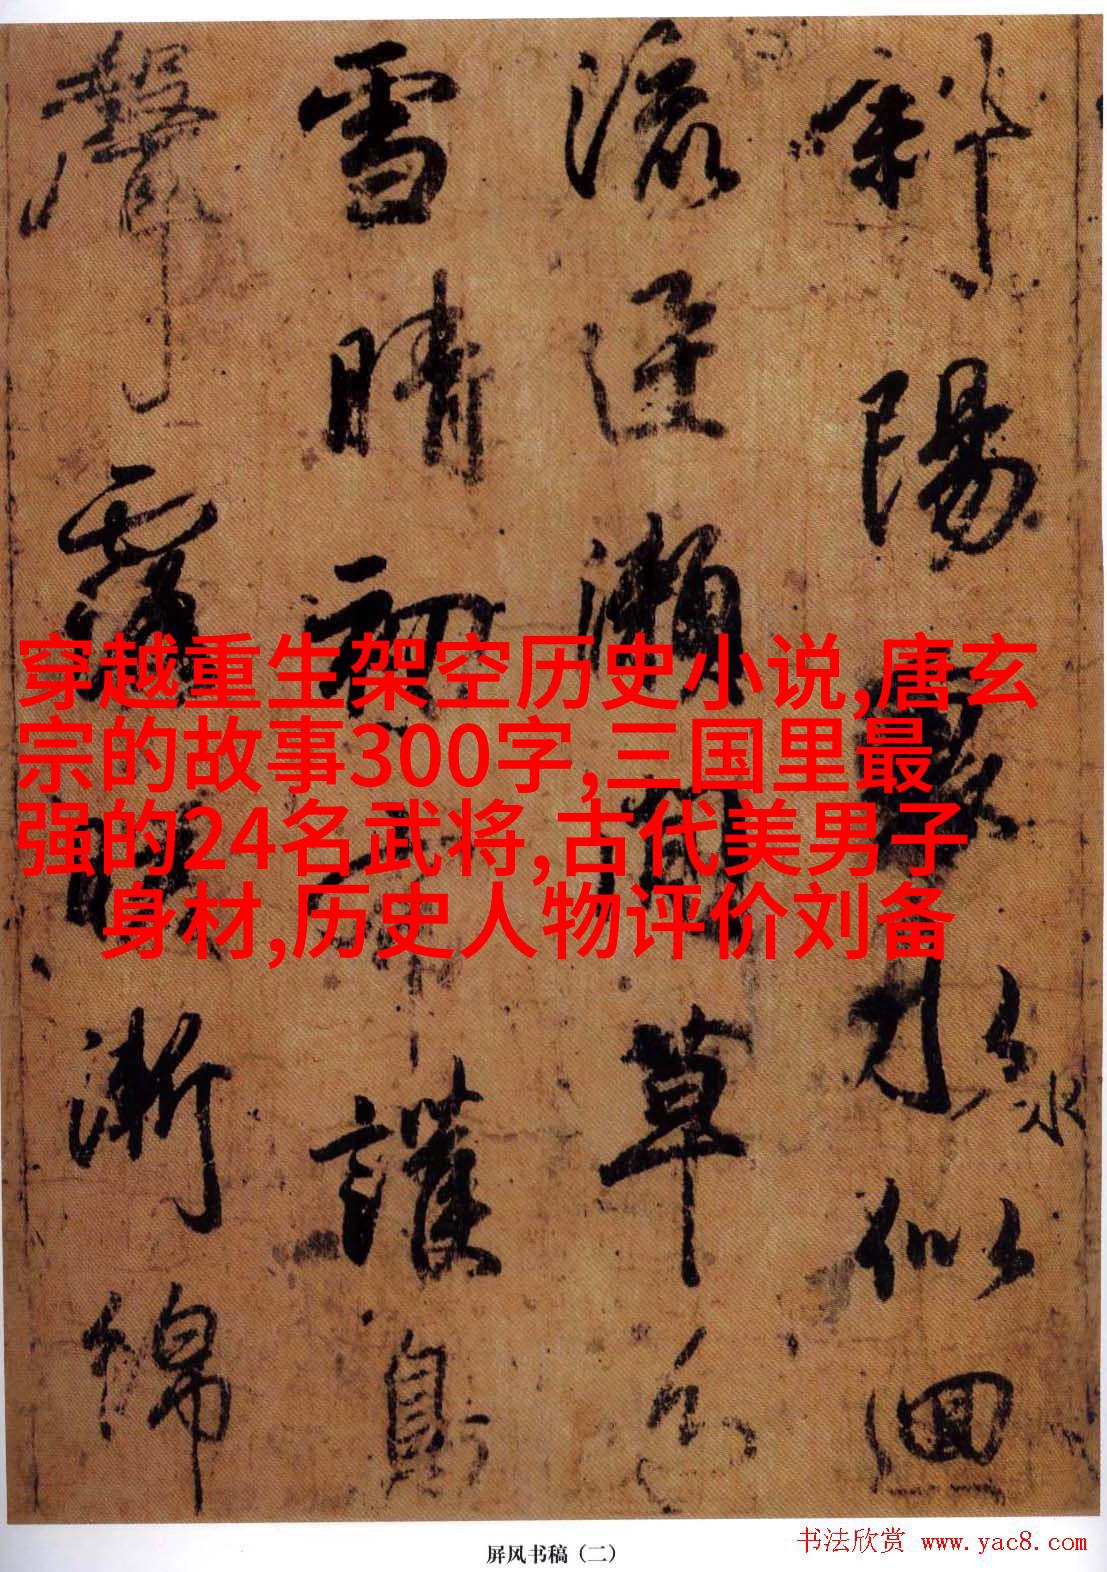 斜陽水似洄
流迳瀨草色
雪晴初護鳥
聲漸綿
穿越重生架空历史小说,唐玄
宗的故事300字,三国里最
强的24名武将,古代美男子
身材,历史人物评价刘备
屏风书稿（二）
书法欣赏 www.yac8.com